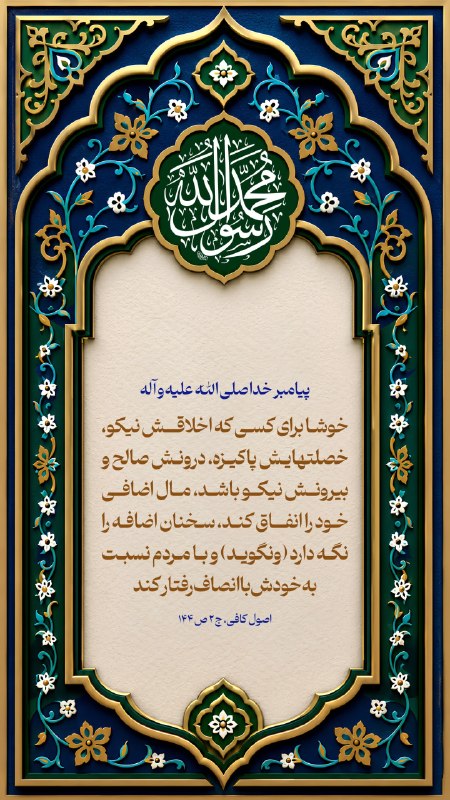 محمد رسول الله
پیامبر خدا صلی الله علیه وآله
خوشا برای کسی که اخلاقش نیکو،
خصلتهایش پاکیزه، درونش صالح و
بیرونش نیکو باشد، مال اضافی
خود را انفاق کند، سخنان اضافه را
نگه دارد (ونگوید) و با مردم نسبت
به خودش با انصاف رفتار کند
اصول کافی، ج۲ ص ۱۴۴